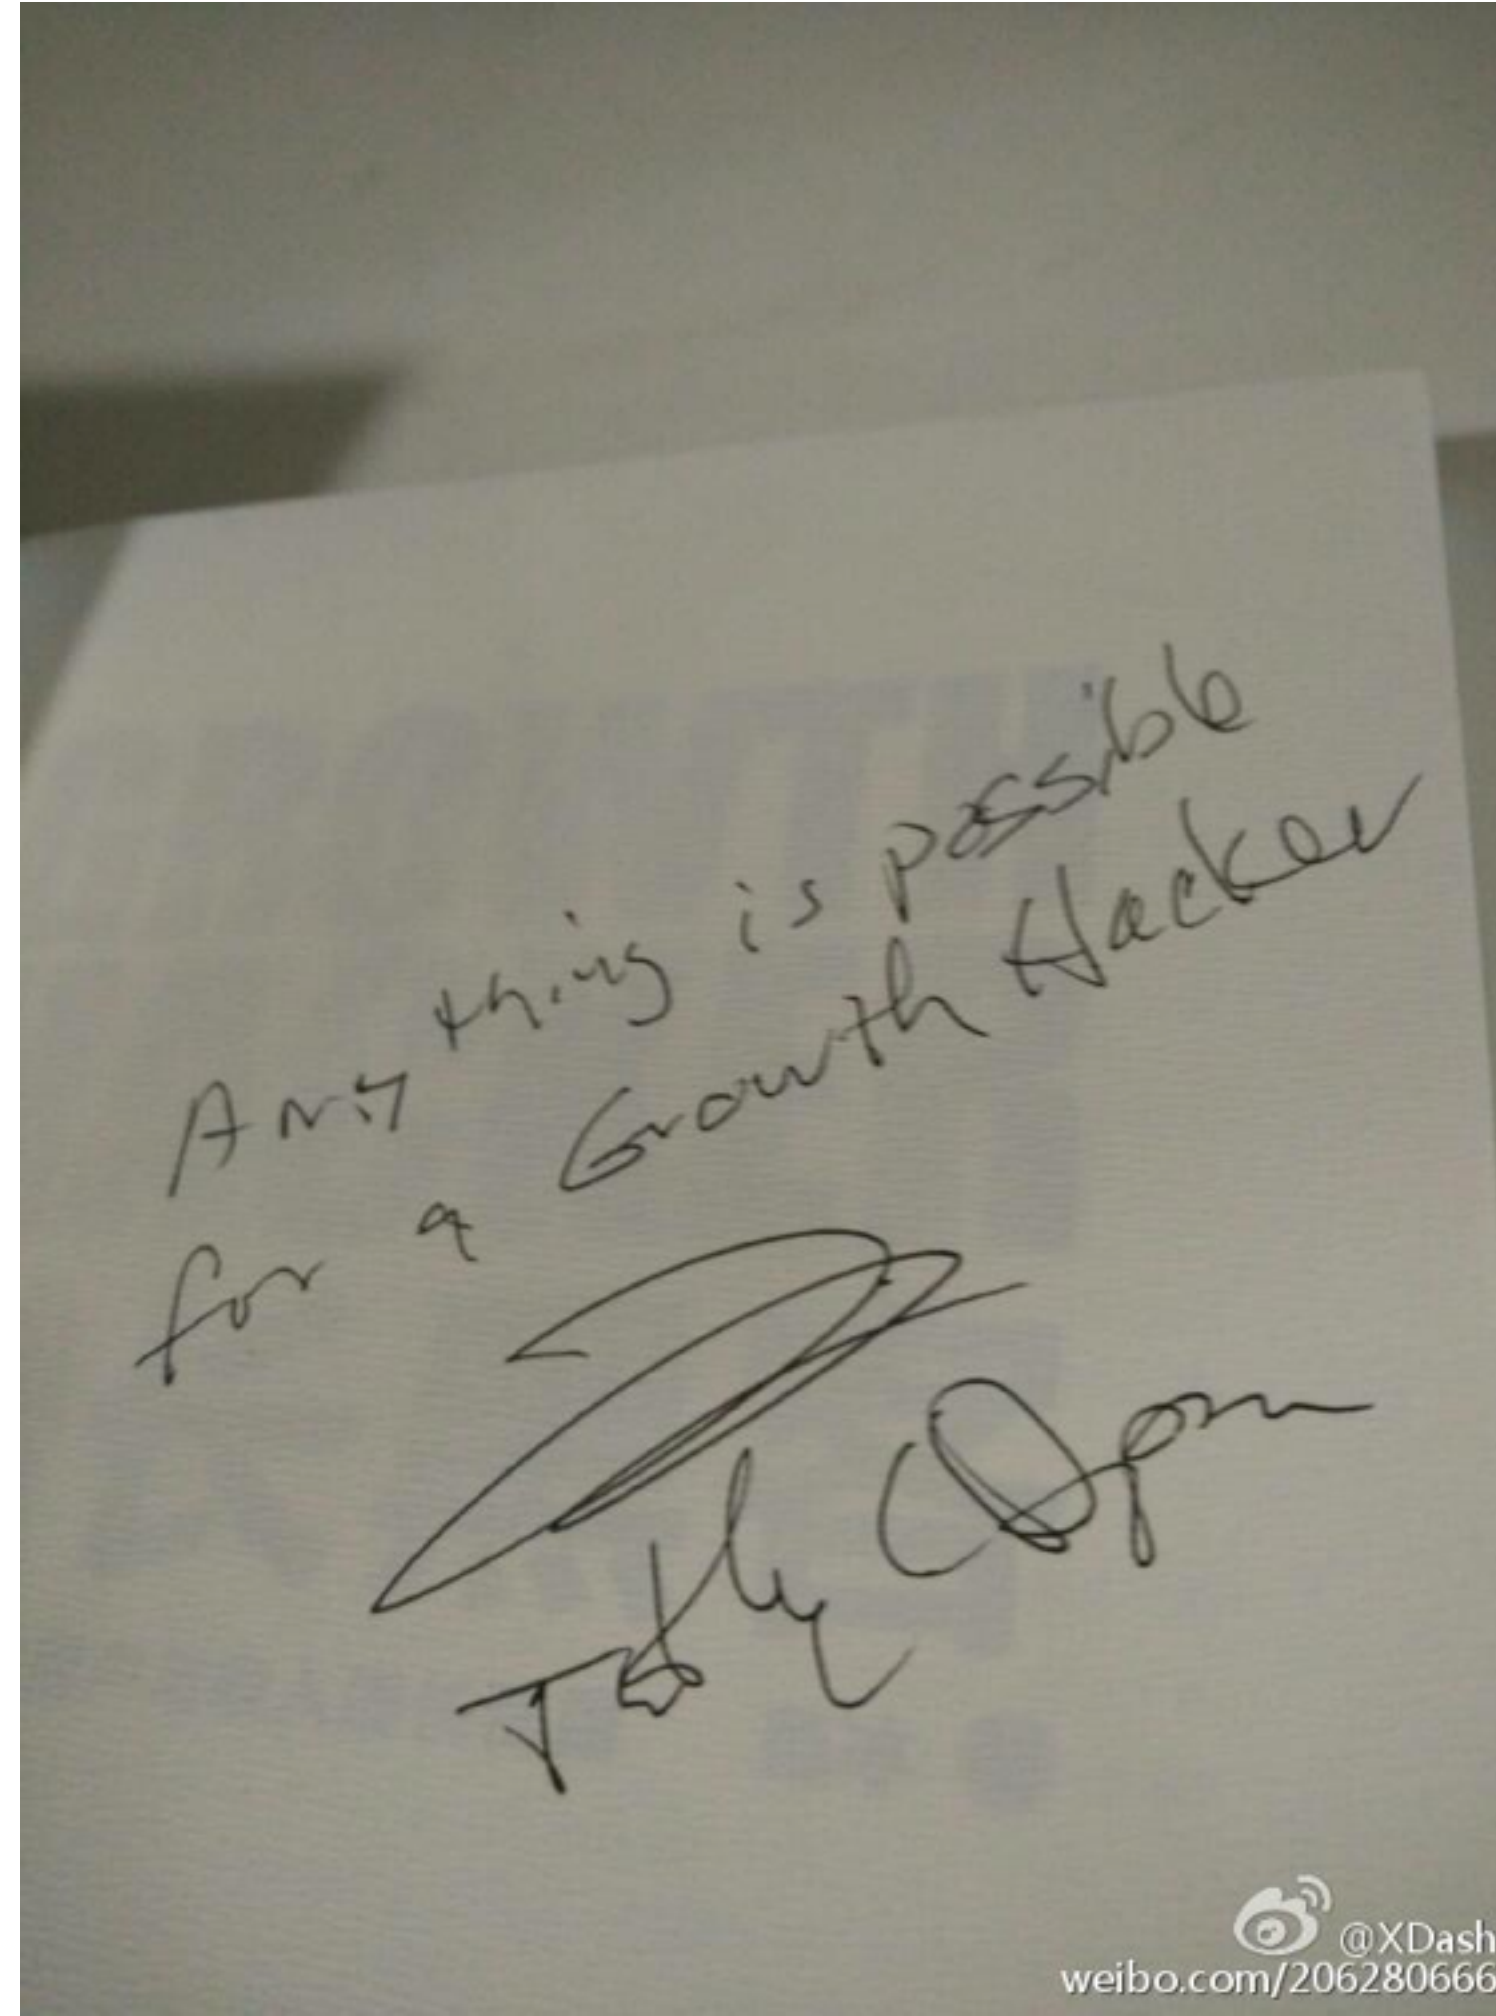 Anything is possible
for a Growth Hacker
@XDash
weibo.com/206280666